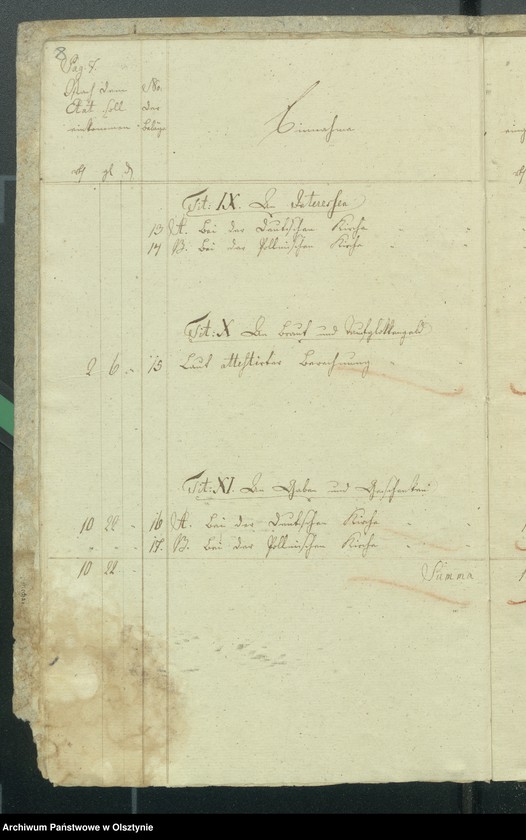 8
Pag: 8.
Nach dem
Etat soll
einkommen
No.
der
Beläge
Einnahme
rtl gl d
Tit: IX. An Interessen
13 A. bei der Deutschen Kirche
14 B. bei der Pollnischen Kirche
Tit: X An Braut und Taufglokkengeld
2 6 - 15 Laut attestirter Berechnung
Tit: XI. An Gaben und Geschenken
10 22 - 16 A. bei der Deutschen Kirche
17. B. bei der Pollnischen Kirche
10 22 - Summa
Archiwum Państwowe w Olsztynie